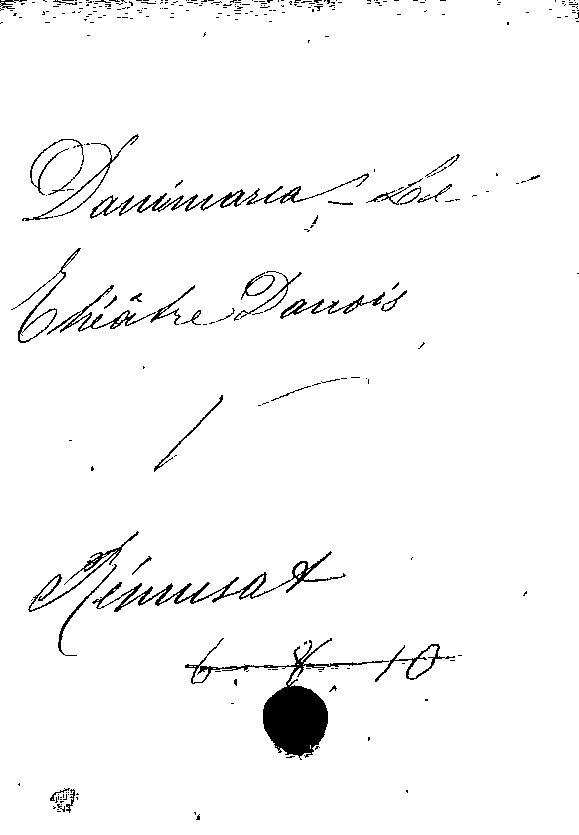 Danimarca - Le
Théâtre Danois
Rémusat
6. 8. 10